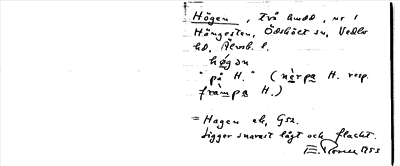 Högen, två hmdd, nr 1
Hängesten, Ödskölt sn, Vedbo
hd, Älvsb. l.
högɔn
"på H." (nèrpa H. resp.
fràmpa H.)
= Hagen ek, Gsz.
Ligger snarast lågt och flackt.
1953